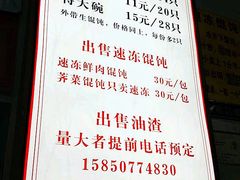 11元/20只
特大碗 15元/28只
外带生馄饨，价格同上，每份多2只
出售速冻馄饨
速冻鲜肉馄饨 30元/包
荠菜馄饨只卖速冻 30元/包
出售油渣
量大者提前电话预定
15850774830